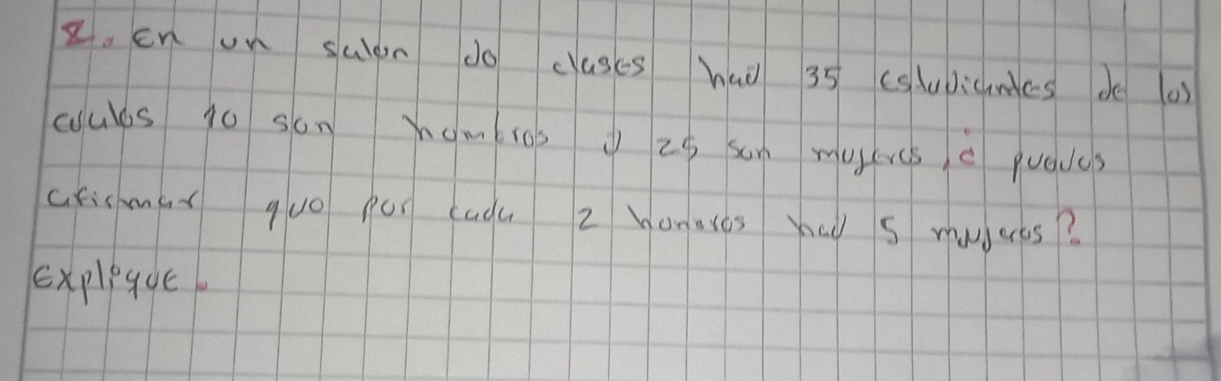 8. En un salon de clases hay 35 estudiantes de los
cuales 10 son hombres y 25 son mujeres, ¿ puedes
afirmar que por cada 2 hombres hay 5 mujeres?
Explique.